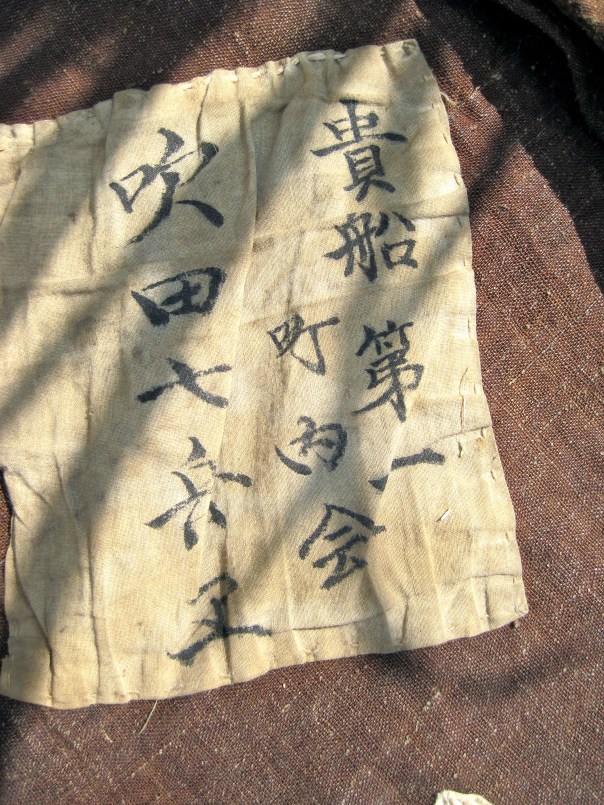 貴船第一
町内会
吹田七兵ヱ